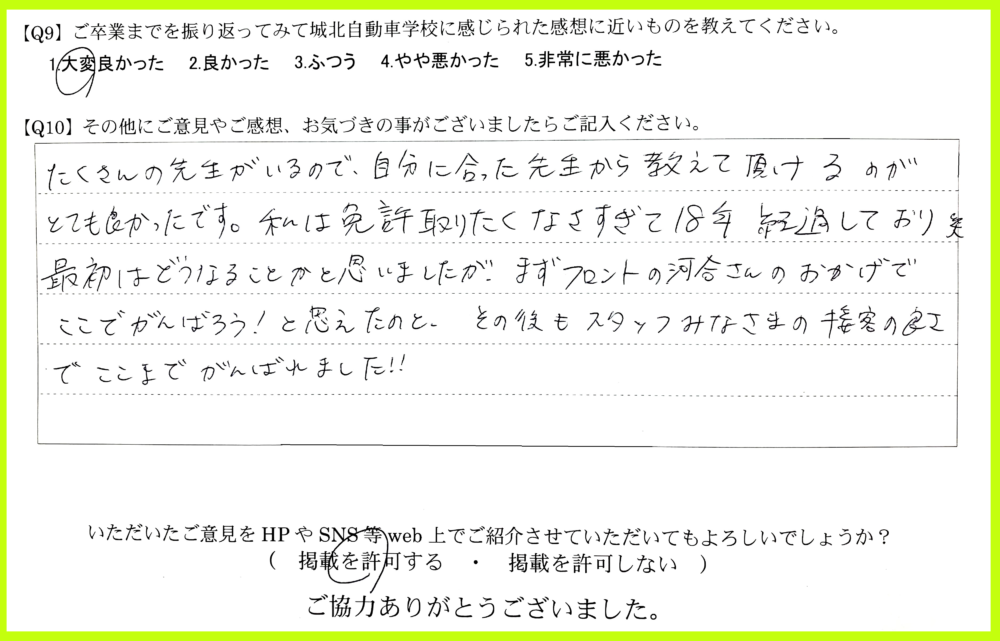 【Q9】ご卒業までを振り返ってみて城北自動車学校に感じられた感想に近いものを教えてください。
1.大変良かった　2.良かった　3.ふつう　4.やや悪かった　5.非常に悪かった
【Q10】その他にご意見やご感想、お気づきの事がございましたらご記入ください。
たくさんの先生がいるので、自分に合った先生から教えて頂けるのが
とても良かったです。私は免許取りたくなさすぎて18年経過しており笑
最初はどうなることかと思いましたが、まずフロントの河合さんのおかげで
ここでがんばろう!と思えたのと、その後もスタッフみなさまの接客の良さ
でここまでがんばれました!!
いただいたご意見をHPやSNS等web上でご紹介させていただいてもよろしいでしょうか?
(　掲載を許可する　・　掲載を許可しない　)
ご協力ありがとうございました。